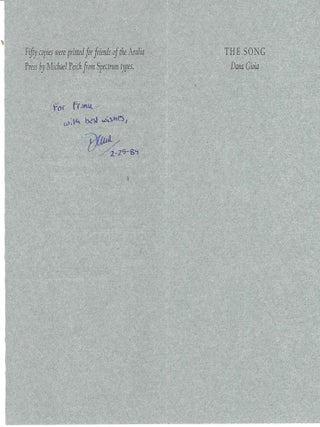 Fifty copies were printed for friends of the Aralia
Press by Michael Peich from Spectrum types.
For Frank
with best wishes,
Dana
2-25-84
THE SONG
Dana Gioia